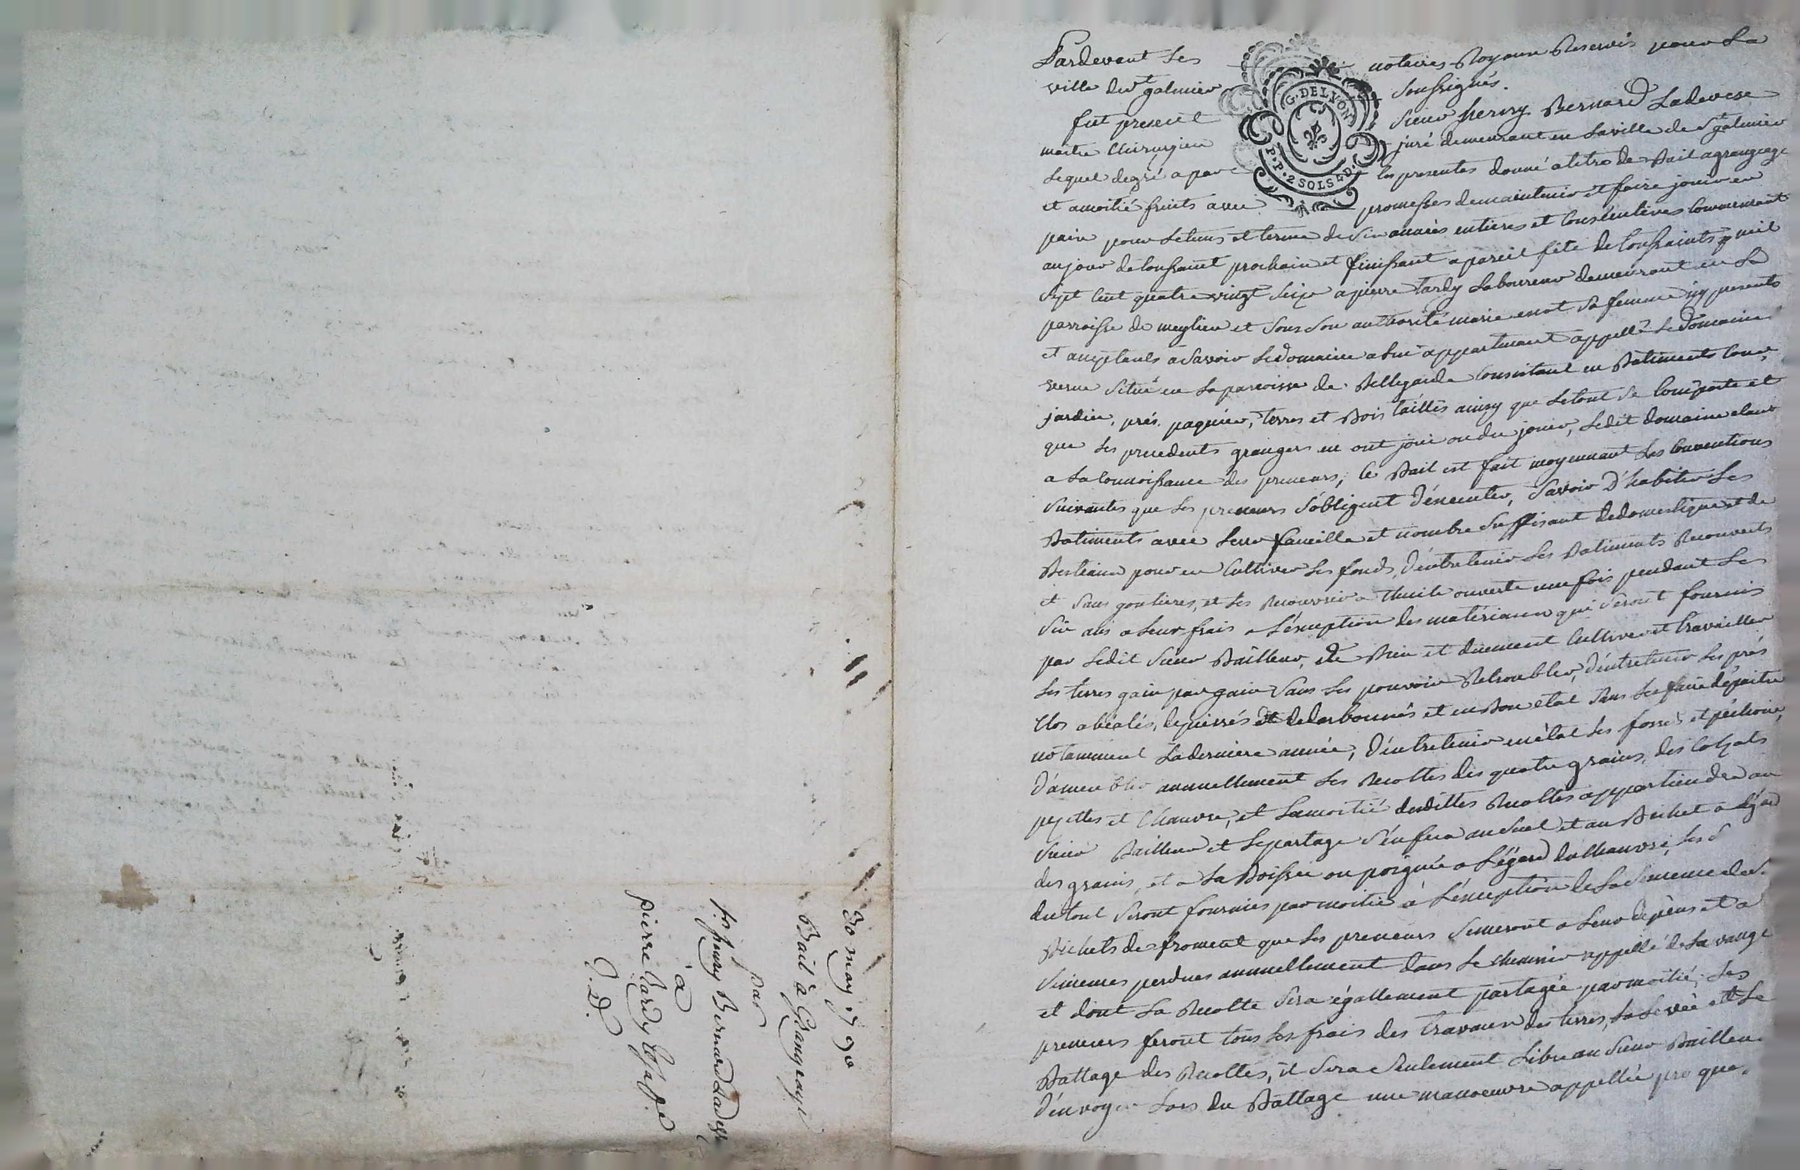 Pardevant Les notaires Royaux Reservés pour La
ville de St galmier soussignés.
fut present Sieur henry Bernard Ladevese
maitre Chirurgien juré demeurant en La ville de St galmier
Lequel de gré a par les presentes donné a titre de Bail a grangeage
et a moitié fruits avec promesses de maintenir et faire jouir en
paix pour Le tems et terme de Six années entieres et Consécutives Commencant
au jour de toussaint prochain et finissant a pareil fête de toussaints
Sept Cent quatre vingt Seize a pierre tardy Laboureur demeurant en La
parroisse de meylieu et Sous Son authorité marie Sa femme icy presents
et acceptants a Savoir Le domaine a Lui appartenant appellé Le domaine
verne Situé en La paroisse de Bellegarde Consistant en Batiments Cour,
jardin, prés, paquier, terres et Bois taillis ainsy que Le tout Se Comporte et
que Les precedents grangers en ont joui ou du jouir, Ledit domaine etant
a La Connoissance des preneurs, Ce Bail est fait moyennant Les Conventions
Suivantes que Les preneurs S'obligent d'executer, Savoir D'habiter Les
Batiments avec Leur famille et nombre Suffisant de domestiques et de
Bestiaux pour en Cultiver Les fonds, d'entretenir Les Batiments Recouverts
et Sans goutieres, et Les Recouvrir a thuile ouverte une fois pendant Les
Six ans a Leur frais a L'exception des materiaux qui Seront fournis
par Ledit Sieur Bailleur, de Bien et duement Cultiver et travailler
Les terres gain par gain Sans Les pouvoir Retroubler, d'entretenir Les prés
Clos et en Bon etat Sans Les faire depaitre
notamment La derniere année, d'entretenir en état Les fossés et
annuellement Les Recoltes des quatre grains, des Colzats
et Chanvre, et La moitié desdittes Recoltes appartiendra au
Sieur Bailleur et Le partage S'en fera au Suel et au Bichet a L'égard
des grains, et a La ou poignée a L'égard du Chanvre, Les
du tout Seront fournies par moitié à L'exception de La Semence de
Bichets de froment que Les preneurs Semeront a Leur depens et a
Semences perdues annuellement dans Le appellé de La
et dont La Recolte Sera également partagée par moitié, Les
preneurs feront tous Les frais des travaux des terres, La Levée et Le
Battage des Recoltes, il Sera Seulement Libre au Sieur Bailleur
d'envoyer Lors du Battage une manoeuvre appellée
G. DE LYON
P.P. 2 SOLS 4 D.
30 may 1790
Bail à Grangeage
par
Sr henry Bernard
à
pierre Tardy